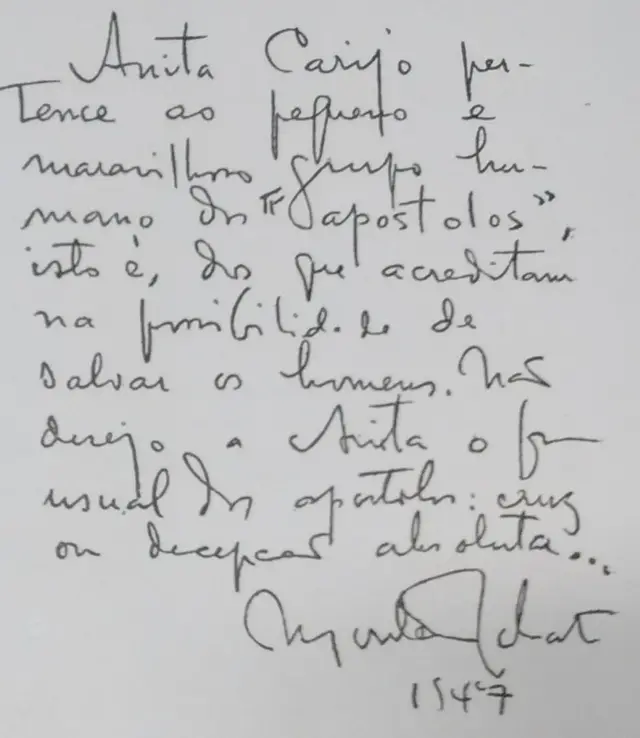 Anita Carijo per-
tence ao pequeno e
maravilhoso grupo hu-
mano dos "apostolos",
isto é, dos que acreditam
na possibilidade de
salvar os homens. Não
desejo a Anita o fim
usual dos apostolos: cruz
ou decepção absoluta...
Monteiro Lobato
1947